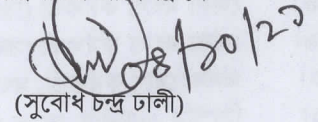 ০৪/১০/২৩
(সুবোধ চন্দ্র ঢালী)